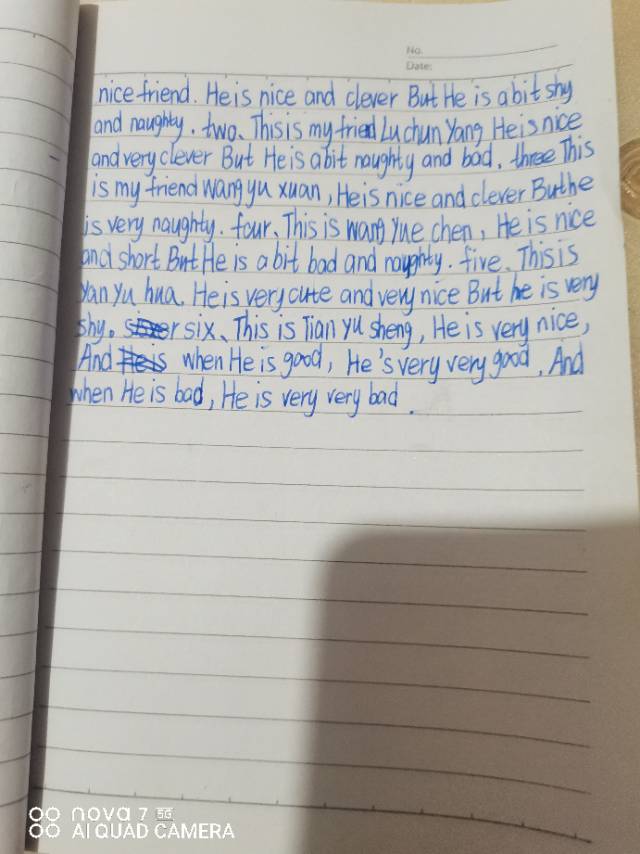 No.
Date:
nice friend. He is nice and clever But He is a bit shy
and naughty. two、This is my fried Lu chun Yang He is nice
and very clever But He is a bit naughty and bad. three This
is my friend wang yu xuan, He is nice and clever But he
is very naughty. four、This is wang Yue chen, He is nice
and short But He is a bit bad and naughty. five、This is
Yan Yu hua. He is very cute and very nice But he is very
shy. six、This is Tian yu sheng, He is very nice,
And He is when He is good, He's very very good. And
when He is bad, He is very very bad.
nova 7 5G
AI QUAD CAMERA